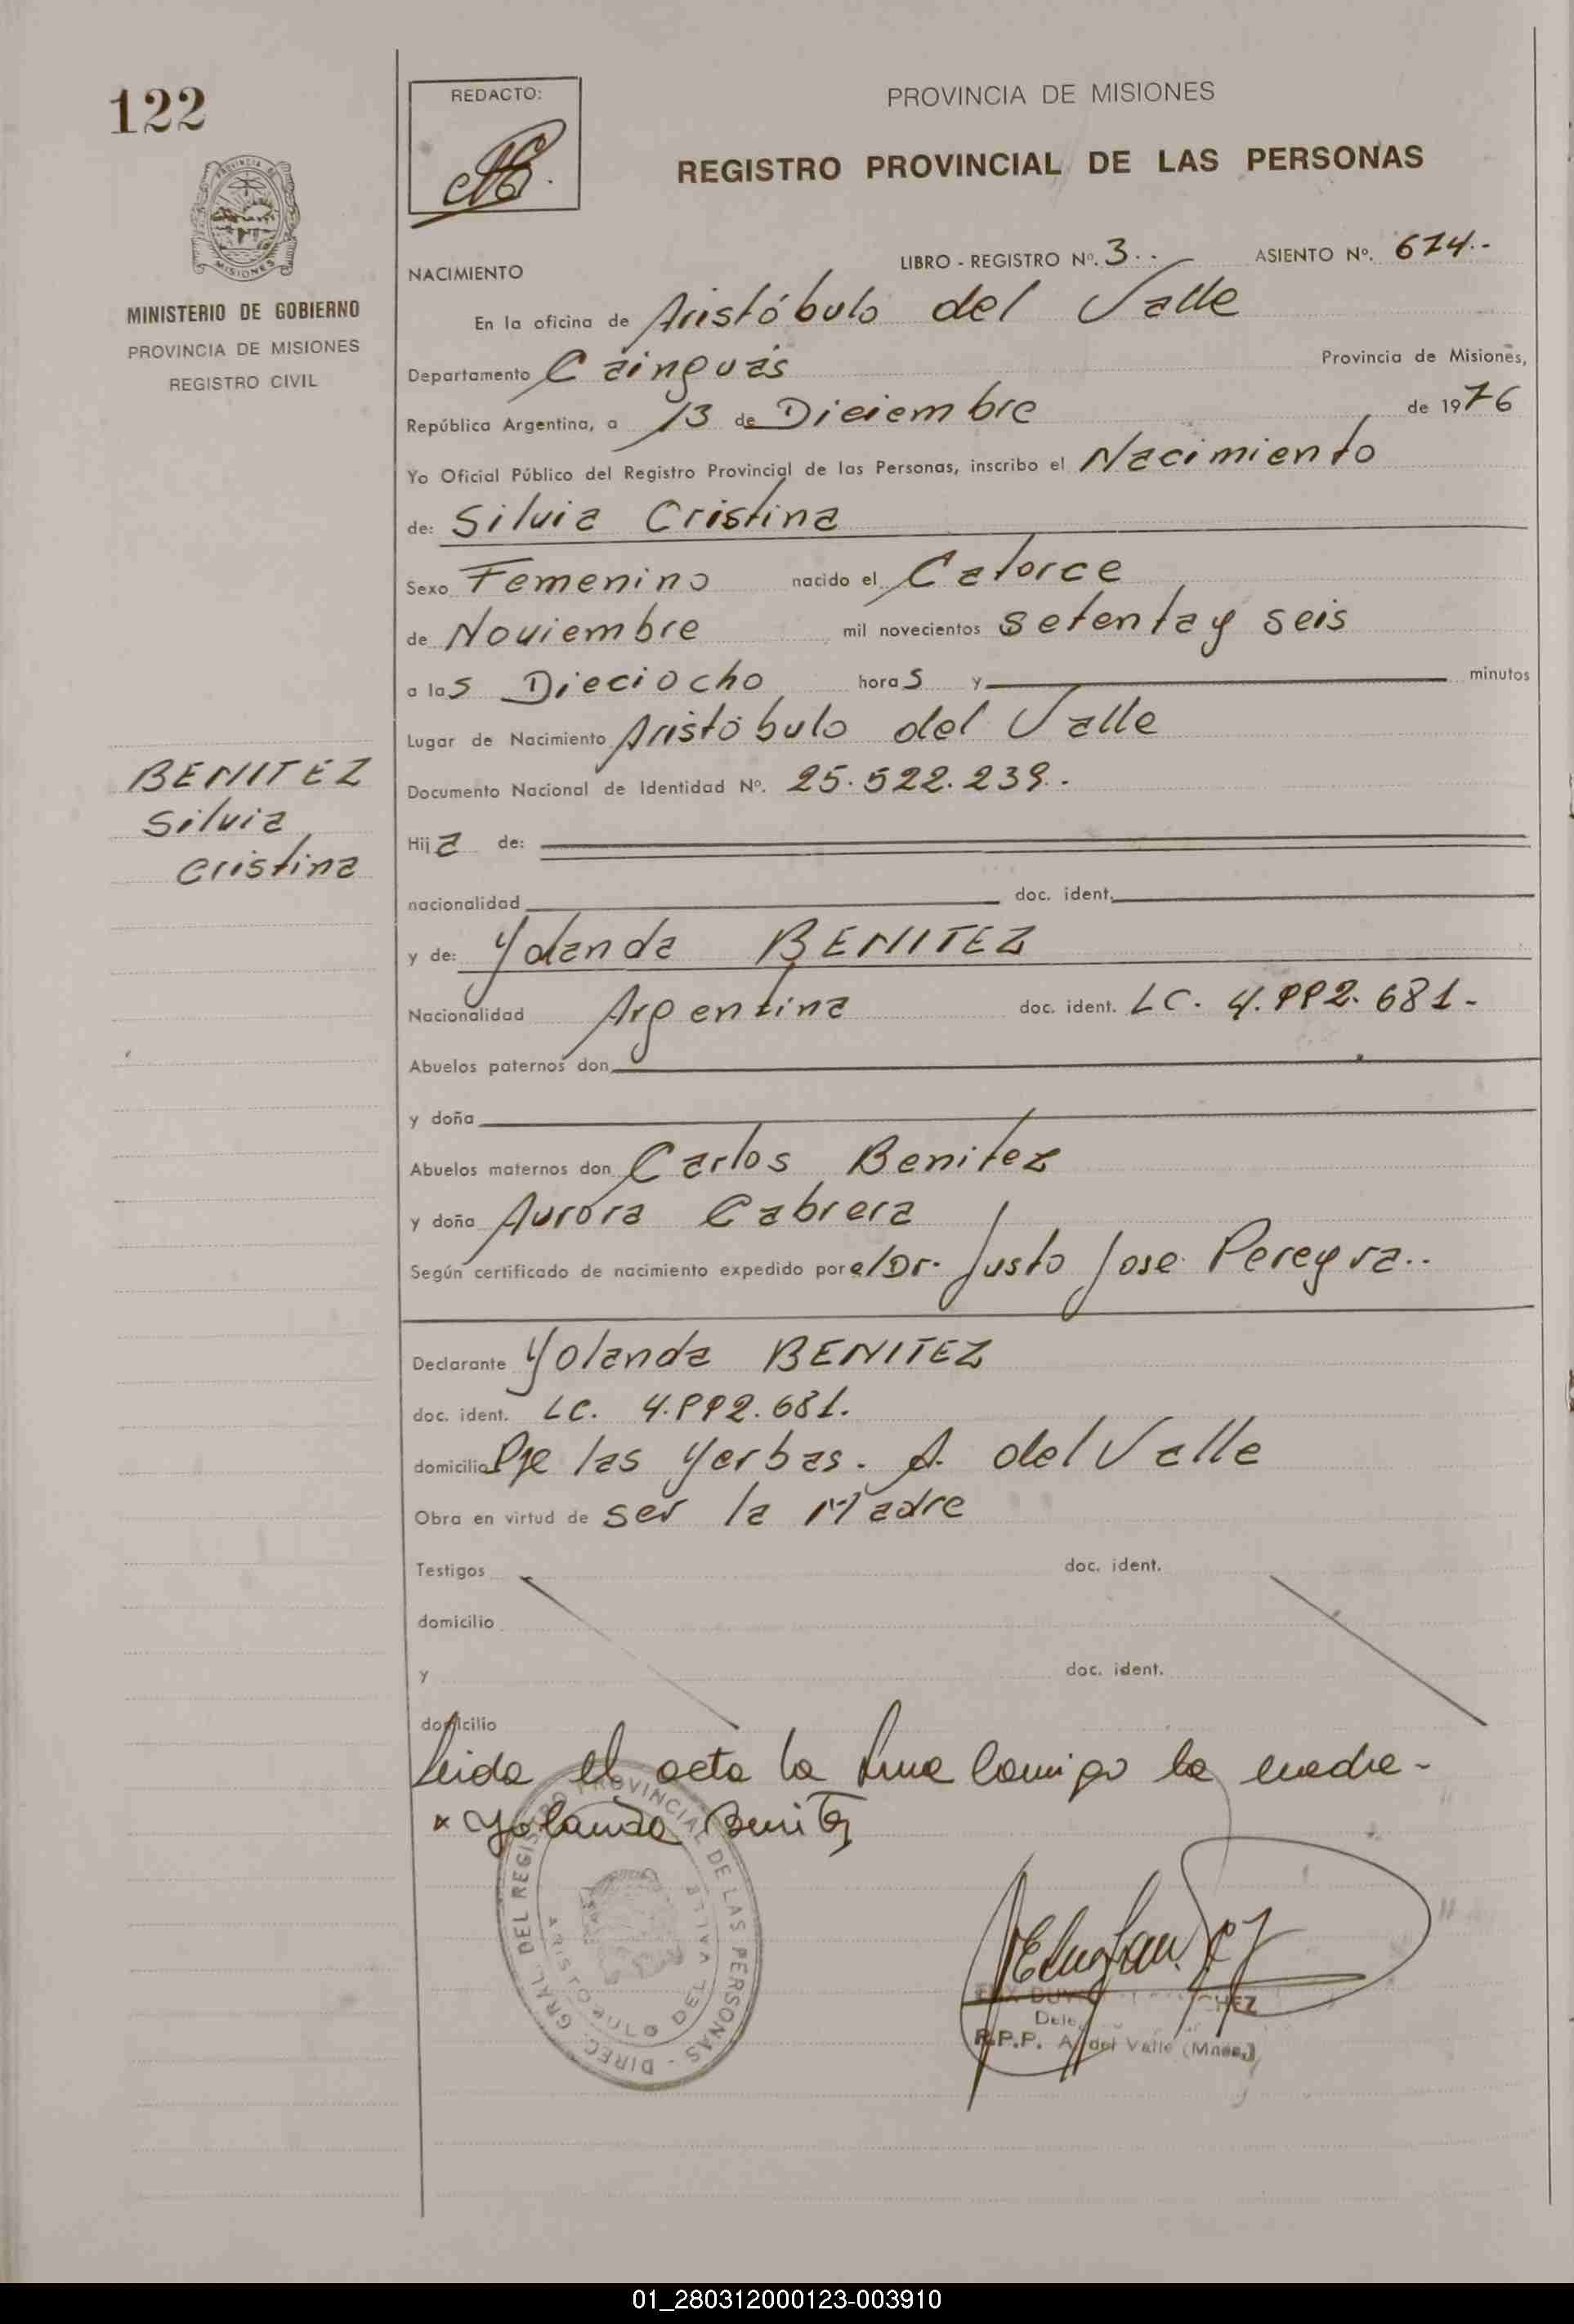 122
REDACTO:
PROVINCIA DE MISIONES
REGISTRO PROVINCIAL DE LAS PERSONAS
PROVINCIA DE
MISIONES
MINISTERIO DE GOBIERNO
PROVINCIA DE MISIONES
REGISTRO CIVIL
NACIMIENTO LIBRO - REGISTRO Nº. 3.. ASIENTO Nº. 674.-
En la oficina de Aristóbulo del Valle
Departamento Cainguás Provincia de Misiones,
República Argentina, a 13 de Diciembre de 1976
Yo Oficial Público del Registro Provincial de las Personas, inscribo el Nacimiento
de: Silvia Cristina
Sexo Femenino nacido el Catorce
de Noviembre mil novecientos setenta y seis
a las Dieciocho horas y minutos
Lugar de Nacimiento Aristóbulo del Valle
BENITEZ
Silvia
Cristina
Documento Nacional de Identidad Nº. 25.522.239.-
Hija de:
nacionalidad doc. ident.
y de: Yolanda BENITEZ
Nacionalidad Argentina doc. ident. LC. 4.992.681-
Abuelos paternos don
y doña
Abuelos maternos don Carlos Benitez
y doña Aurora Cabrera
Según certificado de nacimiento expedido por el Dr. Justo Jose Pereyra..
Declarante Yolanda BENITEZ
doc. ident. LC. 4.992.681.
domicilio Pje las Yerbas. A. del Valle
Obra en virtud de ser la Madre
Testigos doc. ident.
domicilio
y doc. ident.
domicilio
Leida el acta la firma conmigo la madre-
x Yolanda Benitez
DIREC. GRAL. DEL REGISTRO PROVINCIAL DE LAS PERSONAS -
ARISTOBULO DEL VALLE
R.P.P. A. del Valle (Mnes.)
01_280312000123-003910